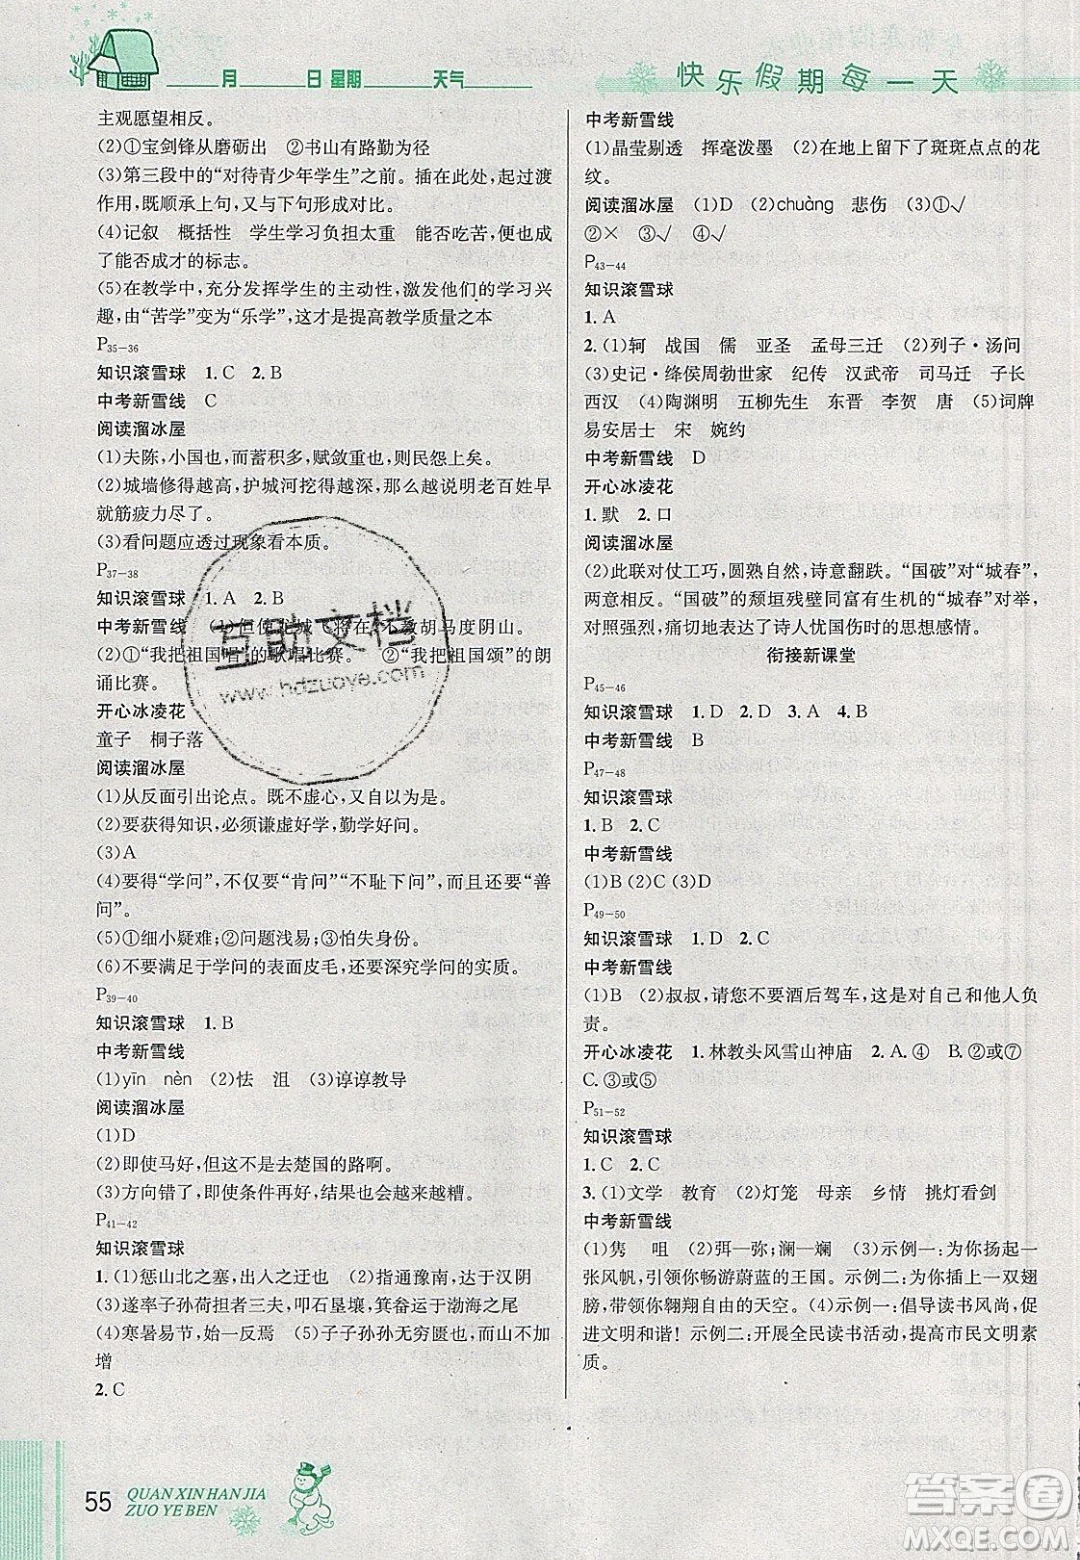 ____月____日 星期____天气____
快乐假期每一天
主观愿望相反。
(2)①宝剑锋从磨砺出　②书山有路勤为径
(3)第三段中的“对待青少年学生”之前。插在此处,起过渡
作用,既顺承上句,又与下句形成对比。
(4)记叙　概括性　学生学习负担太重　能否吃苦,便成
了能否成才的标志。
(5)在教学中,充分发挥学生的主动性,激发他们的学习兴
趣,由“苦学”变为“乐学”,这才是提高教学质量之本
P35-36
知识滚雪球　1. C　2. B
中考新雪线　C
阅读溜冰屋
(1)夫陈,小国也,而蓄积多,赋敛重也,则民怨上矣。
(2)城墙修得越高,护城河挖得越深,那么越说明老百姓早
就筋疲力尽了。
(3)看问题应透过现象看本质。
P37-38
知识滚雪球　1. A　2. B
中考新雪线　(1)但使龙城飞将在　不教胡马度阴山。
(2)①“我把祖国唱”的歌唱比赛。　②“我把祖国颂”的朗
诵比赛。
开心冰凌花
童子　桐子落
阅读溜冰屋
(1)从反面引出论点。既不虚心,又自以为是。
(2)要获得知识,必须谦虚好学,勤学好问。
(3)A
(4)要得“学问”,不仅要“肯问”“不耻下问”,而且还要“善
问”。
(5)①细小疑难;②问题浅易;③怕失身份。
(6)不要满足于学问的表面皮毛,还要深究学问的实质。
P39-40
知识滚雪球　1. B
中考新雪线
(1)yīn　nèn　(2)怙　沮　(3)谆谆教导
阅读溜冰屋
(1)D
(2)即使马好,但这不是去楚国的路啊。
(3)方向错了,即使条件再好,结果也会越来越糟。
P41-42
知识滚雪球
1. (1)惩山北之塞,出入之迂也　(2)指通豫南,达于汉阴
(3)遂率子孙荷担者三夫,叩石垦壤,箕畚运于渤海之尾
(4)寒暑易节,始一反焉　(5)子子孙孙无穷匮也,而山不加
增
2. C
中考新雪线
(1)晶莹剔透　挥毫泼墨　(2)在地上留下了斑斑点点的花
纹。
阅读溜冰屋　(1)D　(2)chuàng　悲伤　(3)①√
②×　③√　④√
P43-44
知识滚雪球
1. A
2. (1)轲　战国　儒　亚圣　孟母三迁　(2)列子·汤问
(3)史记·绛侯周勃世家　纪传　汉武帝　司马迁　子长
西汉　(4)陶渊明　五柳先生　东晋　李贺　唐　(5)词牌
易安居士　宋　婉约
中考新雪线　D
开心冰凌花
1. 默　2. 口
阅读溜冰屋
(2)此联对仗工巧,圆熟自然,诗意翻跌。“国破”对“城春”,
两意相反。“国破”的颓垣残壁同富有生机的“城春”对举,
对照强烈,痛切地表达了诗人忧国伤时的思想感情。
衔接新课堂
P45-46
知识滚雪球　1. D　2. D　3. A　4. B
中考新雪线　B
P47-48
知识滚雪球
1. B　2. C
中考新雪线
(1)B (2)C (3)D
P49-50
知识滚雪球　1. D　2. C
中考新雪线
(1)B　(2)叔叔,请您不要酒后驾车,应该对自己和他人负
责。
开心冰凌花　1. 林教头风雪山神庙　2. A. ④　B. ②或⑦
C. ③或⑤
P51-52
知识滚雪球
1. C　2. C
3. (1)文学　教育　(2)灯笼　母亲　乡情　挑灯看剑
中考新雪线
(1)隽　咀　(2)弭—弥;澜—斓　(3)示例一:为你扬起一
张风帆,引领你畅游蔚蓝的王国。示例二:为你插上一双翅
膀,带领你翱翔自由的天空。(4)示例一:倡导读书风尚,促
进文明和谐!　示例二:开展全民读书活动,提高市民文明素
质。
互助文档
www.hdzuoye.com
55
QUAN XIN HAN JIA
ZUO YE BEN
答案圈
MXQE.COM